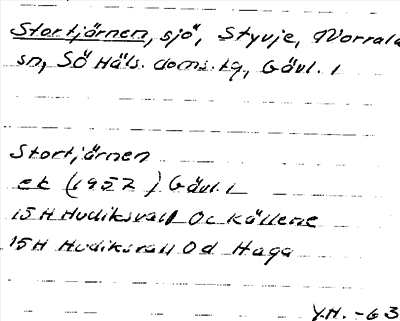 Stortjärnen, sjö, Styvje, Norrala
sn, Sö Häls. doms. tg, Gävl. l
Stortjärnen
ek (1957) Gävl. l
15H Hudiksvall 0c Källene
15H Hudiksvall 0d Haga
Y.H. -63